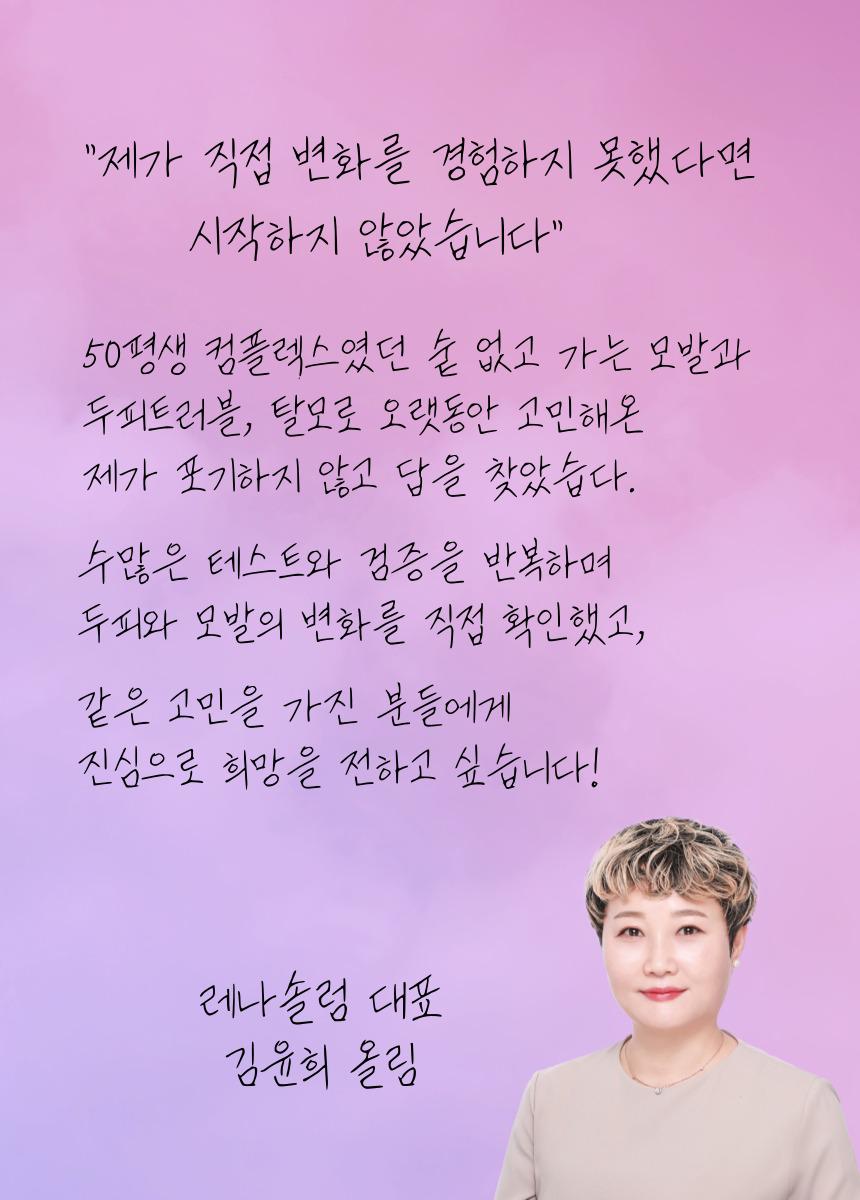 "제가 직접 변화를 경험하지 못했다면
시작하지 않았습니다"
50평생 컴플렉스였던 숱 없고 가는 모발과
두피트러블, 탈모로 오랫동안 고민해온
제가 포기하지 않고 답을 찾았습다.
수많은 테스트와 검증을 반복하며
두피와 모발의 변화를 직접 확인했고,
같은 고민을 가진 분들에게
진심으로 희망을 전하고 싶습니다!
레나솔럼 대표
김윤희 올림